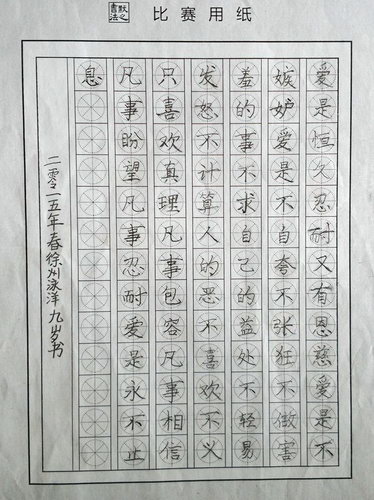 默之書法
比赛用纸
爱是恒久忍耐又有恩慈爱是不
嫉妒爱是不自夸不张狂不做害
羞的事不求自己的益处不轻易
发怒不计算人的恶不喜欢不义
只喜欢真理凡事包容凡事相信
凡事盼望凡事忍耐爱是永不止
息
二零一五年春徐州泳洋九岁书